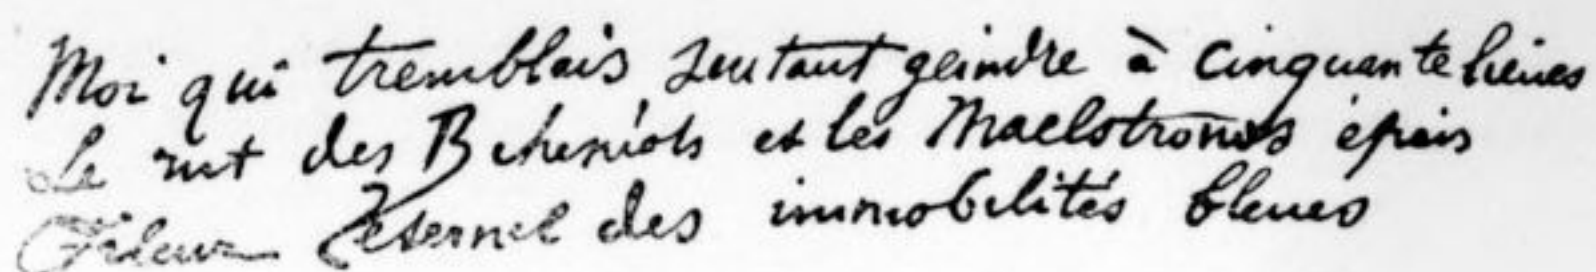 Moi qui tremblais sentant geindre à cinquante lieues
Le rut des Béhémots et les Maelstroms épais
Fileur Eternel des immobilités bleues